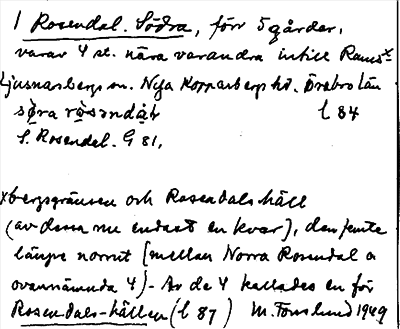 1 Rosendal. Södra, förr 5 gårder,
varav 4 st. nära varandra intill Rams-x
Ljusnarsbergs sn. Nya Kopparbergs hd. Örebro län
sø̀ra rò̱səndàɫ l 84
S. Rosendel. G 81.
xbergsgränsen och Rosendals häll
(av dessa nu endast en kvar), den femte
längre norrut [mellan Norra Rosendal o
ovannämnda 4) - Av de 4 kallades en för
Rosendals-hällen (l 87) M. Fonslund 1949